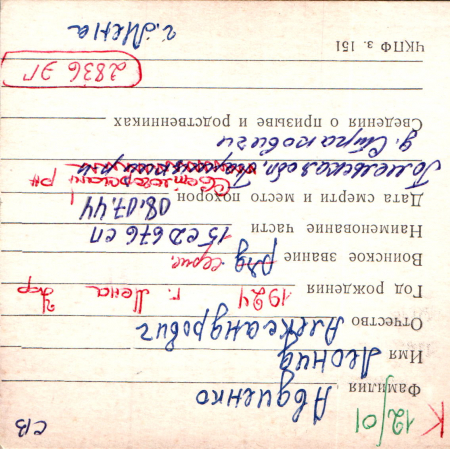 К 12/01 СВ
Фамилия Авдиенко
Имя Леонид
Отчество Александрович
Год рождения 1924 г. Мена Укр
Воинское звание ряд серж.
Наименование части 15 сд 676 сп
Дата смерти и место похорон 08.07.44
Светлогорский рн
Гомельская обл,
д. Страковичи
Сведения о призыве и родственниках
2836 ЭГ
ЧКПФ з. 151
г. Мена